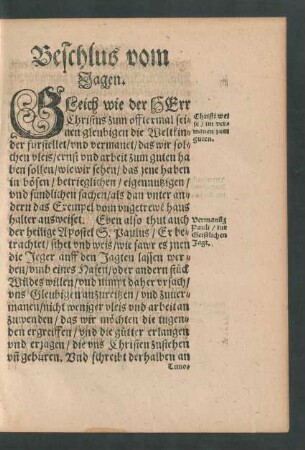 Beschlus vom
Jagen.
Gleich wie der HErr
Christus zum offtermal sei-
nen gleubigen die Weltkin-
der fürstellet/vnd vermanet/das wir sol-
chen vleis/ernst vnd arbeit zum guten ha-
ben sollen/wie wir sehen/das jene haben
in bösen/betrieglichen/eigennutzigen/
vnd sündlichen sachen/als dan vnter an-
dern das Exempel vom vngetrewē haus
halter ausweiset. Eben also thut auch
der heilige Apostel S. Paulus/Er be-
trachtet/sihet vnd weis/wie sawr es jnen
die Jeger auff den Jagten lassen wer-
den/vmb eines Hasen/oder andern stück
Wildes willen/vnd nimpt daher vrsach/
vns Gleubigen anzureitzen/vnd zuuer-
manen/nicht weniger vleis vnd arbeit an
zuwenden/das wir möchten die tugen-
den ergreiffen/vnd die gütter erlangen
vnd erjagen/die vns Christen zustehen
vn̄ gebüren. Vnd schreibt derhalben an
Timo-
Christi wei
se/im ver-
manen zum
guten.
Vermanūg
Pauli/zur
Geistlichen
Jagt.